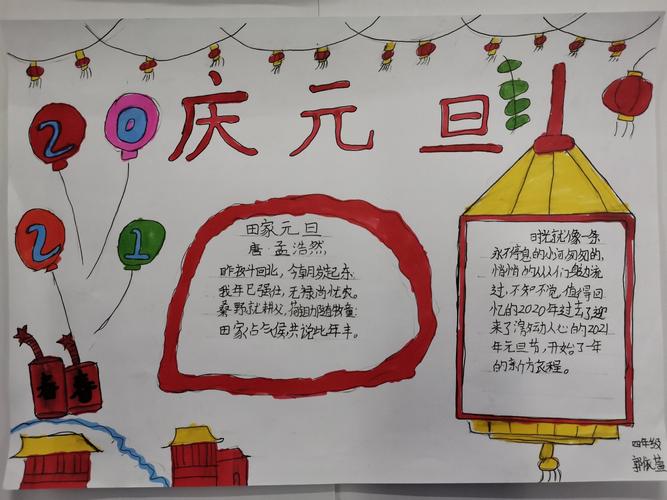 庆元旦
20
21
春 春
田家元旦
唐·孟浩然
昨夜斗回北,今朝岁起东
我年已强仕,无禄尚忧农。
桑野就耕父,荷锄随牧童
田家占气候共说此年丰。
时光就像一条
永不停息的小河匆匆的,
悄悄的从人们身边流
过,不知不觉,值得回
忆的2020年过去了迎
来了激动人心的2021
年元旦节,开始了一年
的新的旅程。
四年级
郭